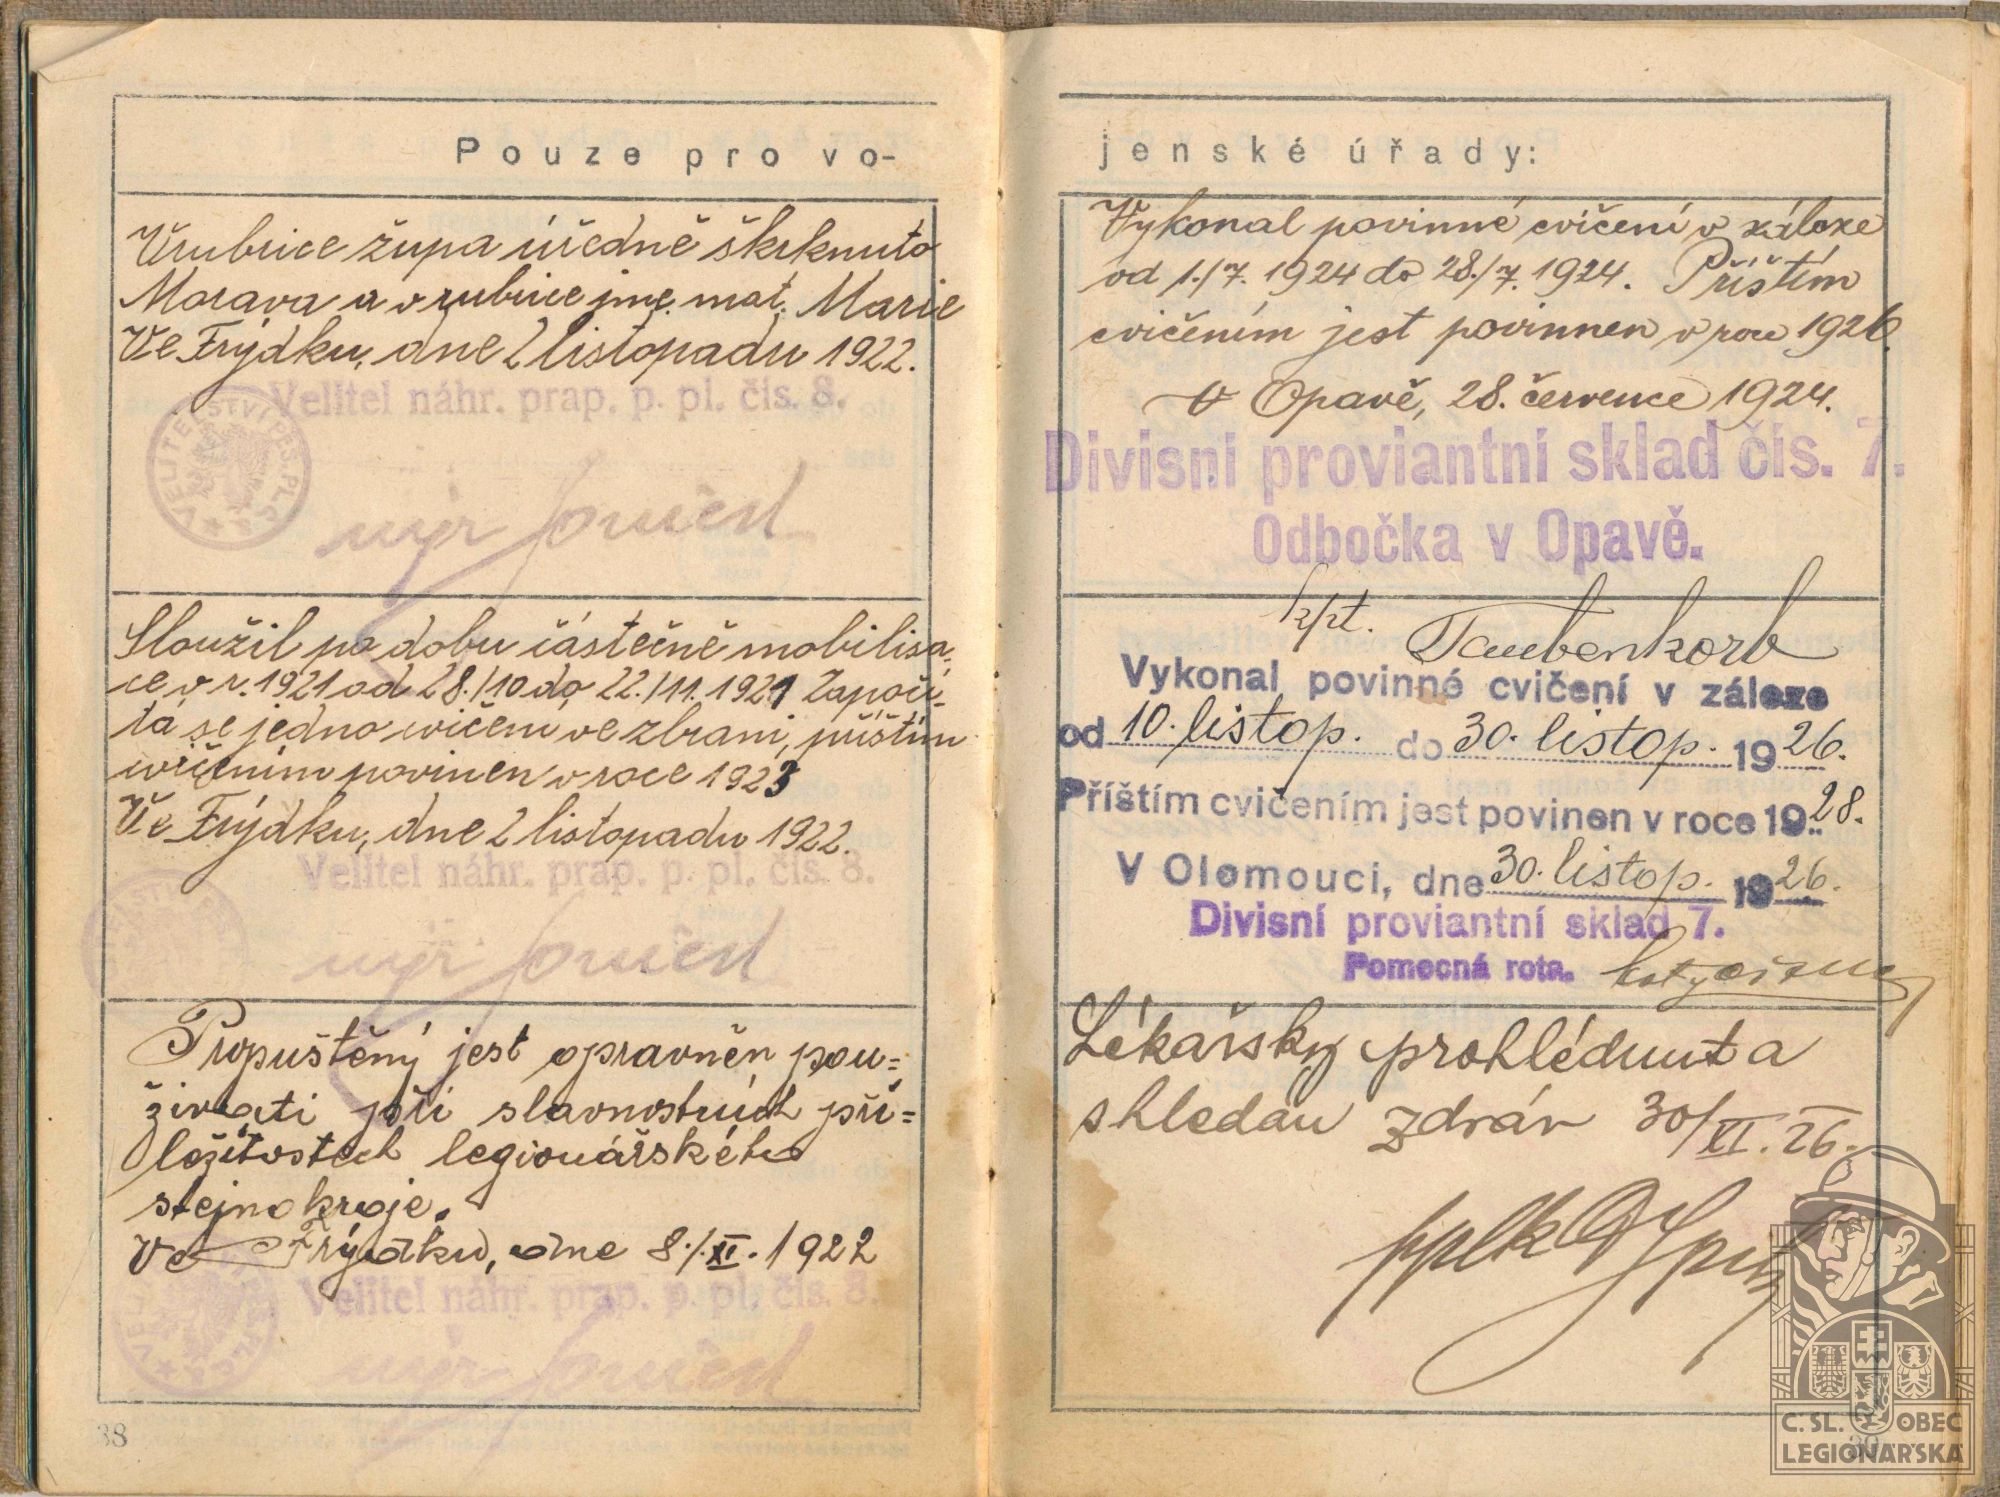 Pouze pro vo-
V rubrice župa úředně škrknuto
Morava a v rubrice jme. mat. Marie
Ve Frýdku, dne 2 listopadu 1922.
Velitel náhr. prap. p. pl. čís. 8.
VELITELSTVÍ PĚŠ. PLUKU 8
mjr
Sloužil po dobu částečné mobilisa-
ce v r. 1921 od 28./10 do 22./11. 1921 Započí-
tá se jedno cvičení ve zbrani, příštím
cvičením povinen v roce 1923
Ve Frýdku, dne 2 listopadu 1922.
Velitel náhr. prap. p. pl. čís. 8.
mjr
Propuštěný jest oprávněn pou-
živati při slavnostních pří=
ležitostech legionářského
stejnokroje.
Ve Frýdku, dne 8./XI. 1922
Velitel náhr. prap. p. pl. čís. 8.
mjr
38
jenské úřady:
Vykonal povinné cvičení v záloze
od 1./7. 1924 do 28./7. 1924. Příštím
cvičením jest povinnen v roce 1926.
V Opavě, 28. července 1924.
Divisní proviantní sklad čís. 7.
Odbočka v Opavě.
kpt. Taubenkorb
Vykonal povinné cvičení v záloze
od 10. listop. do 30. listop. 1926.
Příštím cvičením jest povinen v roce 1928.
V Olomouci, dne 30. listop. 1926.
Divisní proviantní sklad 7.
Pomocná rota.
Lékařsky prohlédnut a
shledán zdráv 30/XI. 26.
pplk
Č. SL. OBEC
LEGIONÁŘSKÁ
39